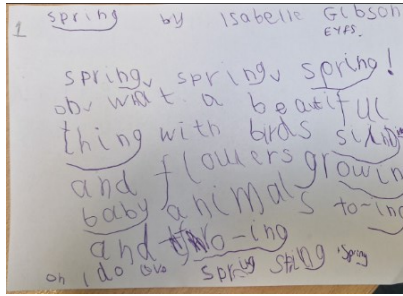 1 spring by Isabelle Gibson
EYFS.
spring, spring, spring!
oh, what a beatiful
thing with birds siring
and flowers growing
baby animals to-ing
and fro-ing
oh i do love spring spring spring